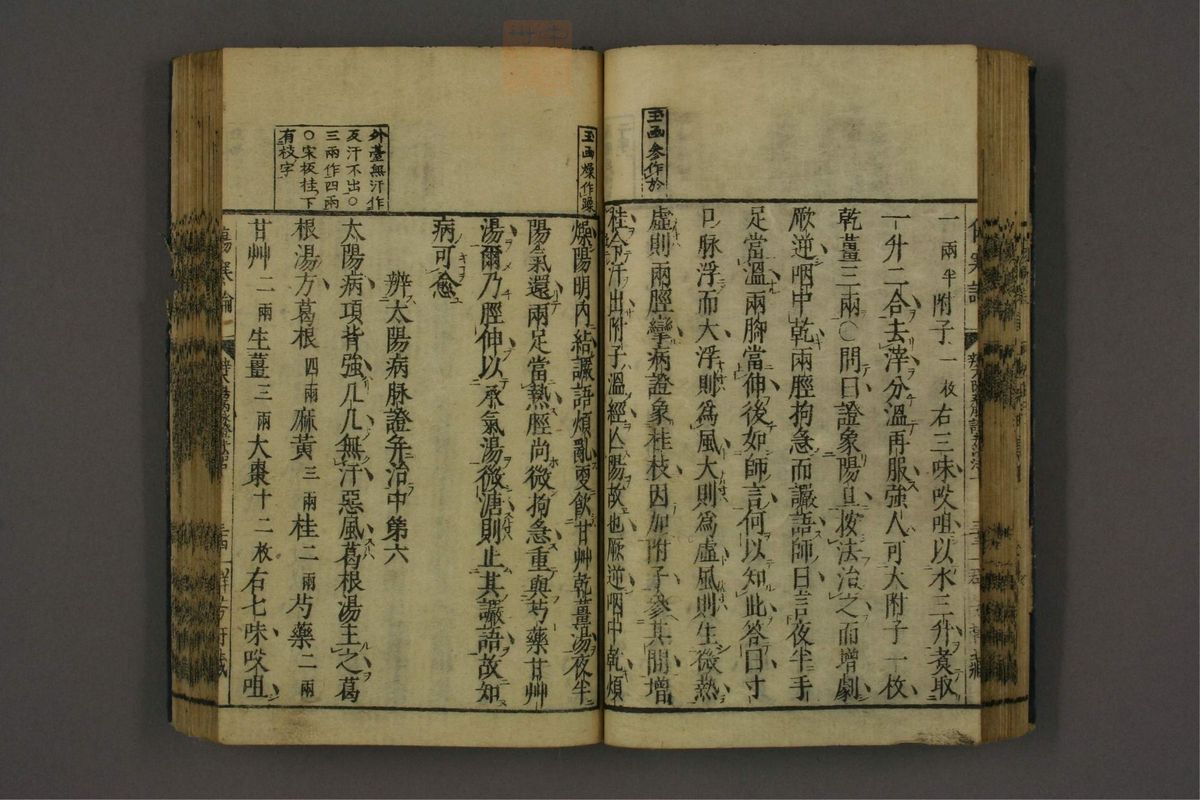 玉函參作於
一兩半附子一枚右三味㕮咀以水三升煑取
一升二合去滓分溫再服強人可大附子一枚
乾薑三兩○問曰證象陽旦按法治之而增劇
厥逆咽中乾兩脛拘急而讝語師曰言夜半手
足當溫兩脚當伸後如師言何以知此答曰寸
口脉浮而大浮則爲風大則爲虛風則生微熱
虛則兩脛攣病證象桂枝因加附子參其間增
桂令汗出附子溫經亾陽故也厥逆咽中乾煩
玉函燥作躁
外臺無汗作
反汗不出○
三兩作四兩
○宋板桂下
有枝字
燥陽明內結讝語煩亂更飲甘艸乾薑湯夜半
陽氣還兩足當熱脛尚微拘急重與芍藥甘艸
湯爾乃脛伸以承氣湯微溏則止其讝語故知
病可愈
辨太陽病脉證并治中第六
太陽病項背強几几無汗惡風葛根湯主之葛
根湯方葛根四兩麻黃三兩桂二兩芍藥二兩
甘艸二兩生薑三兩大棗十二枚右七味㕮咀